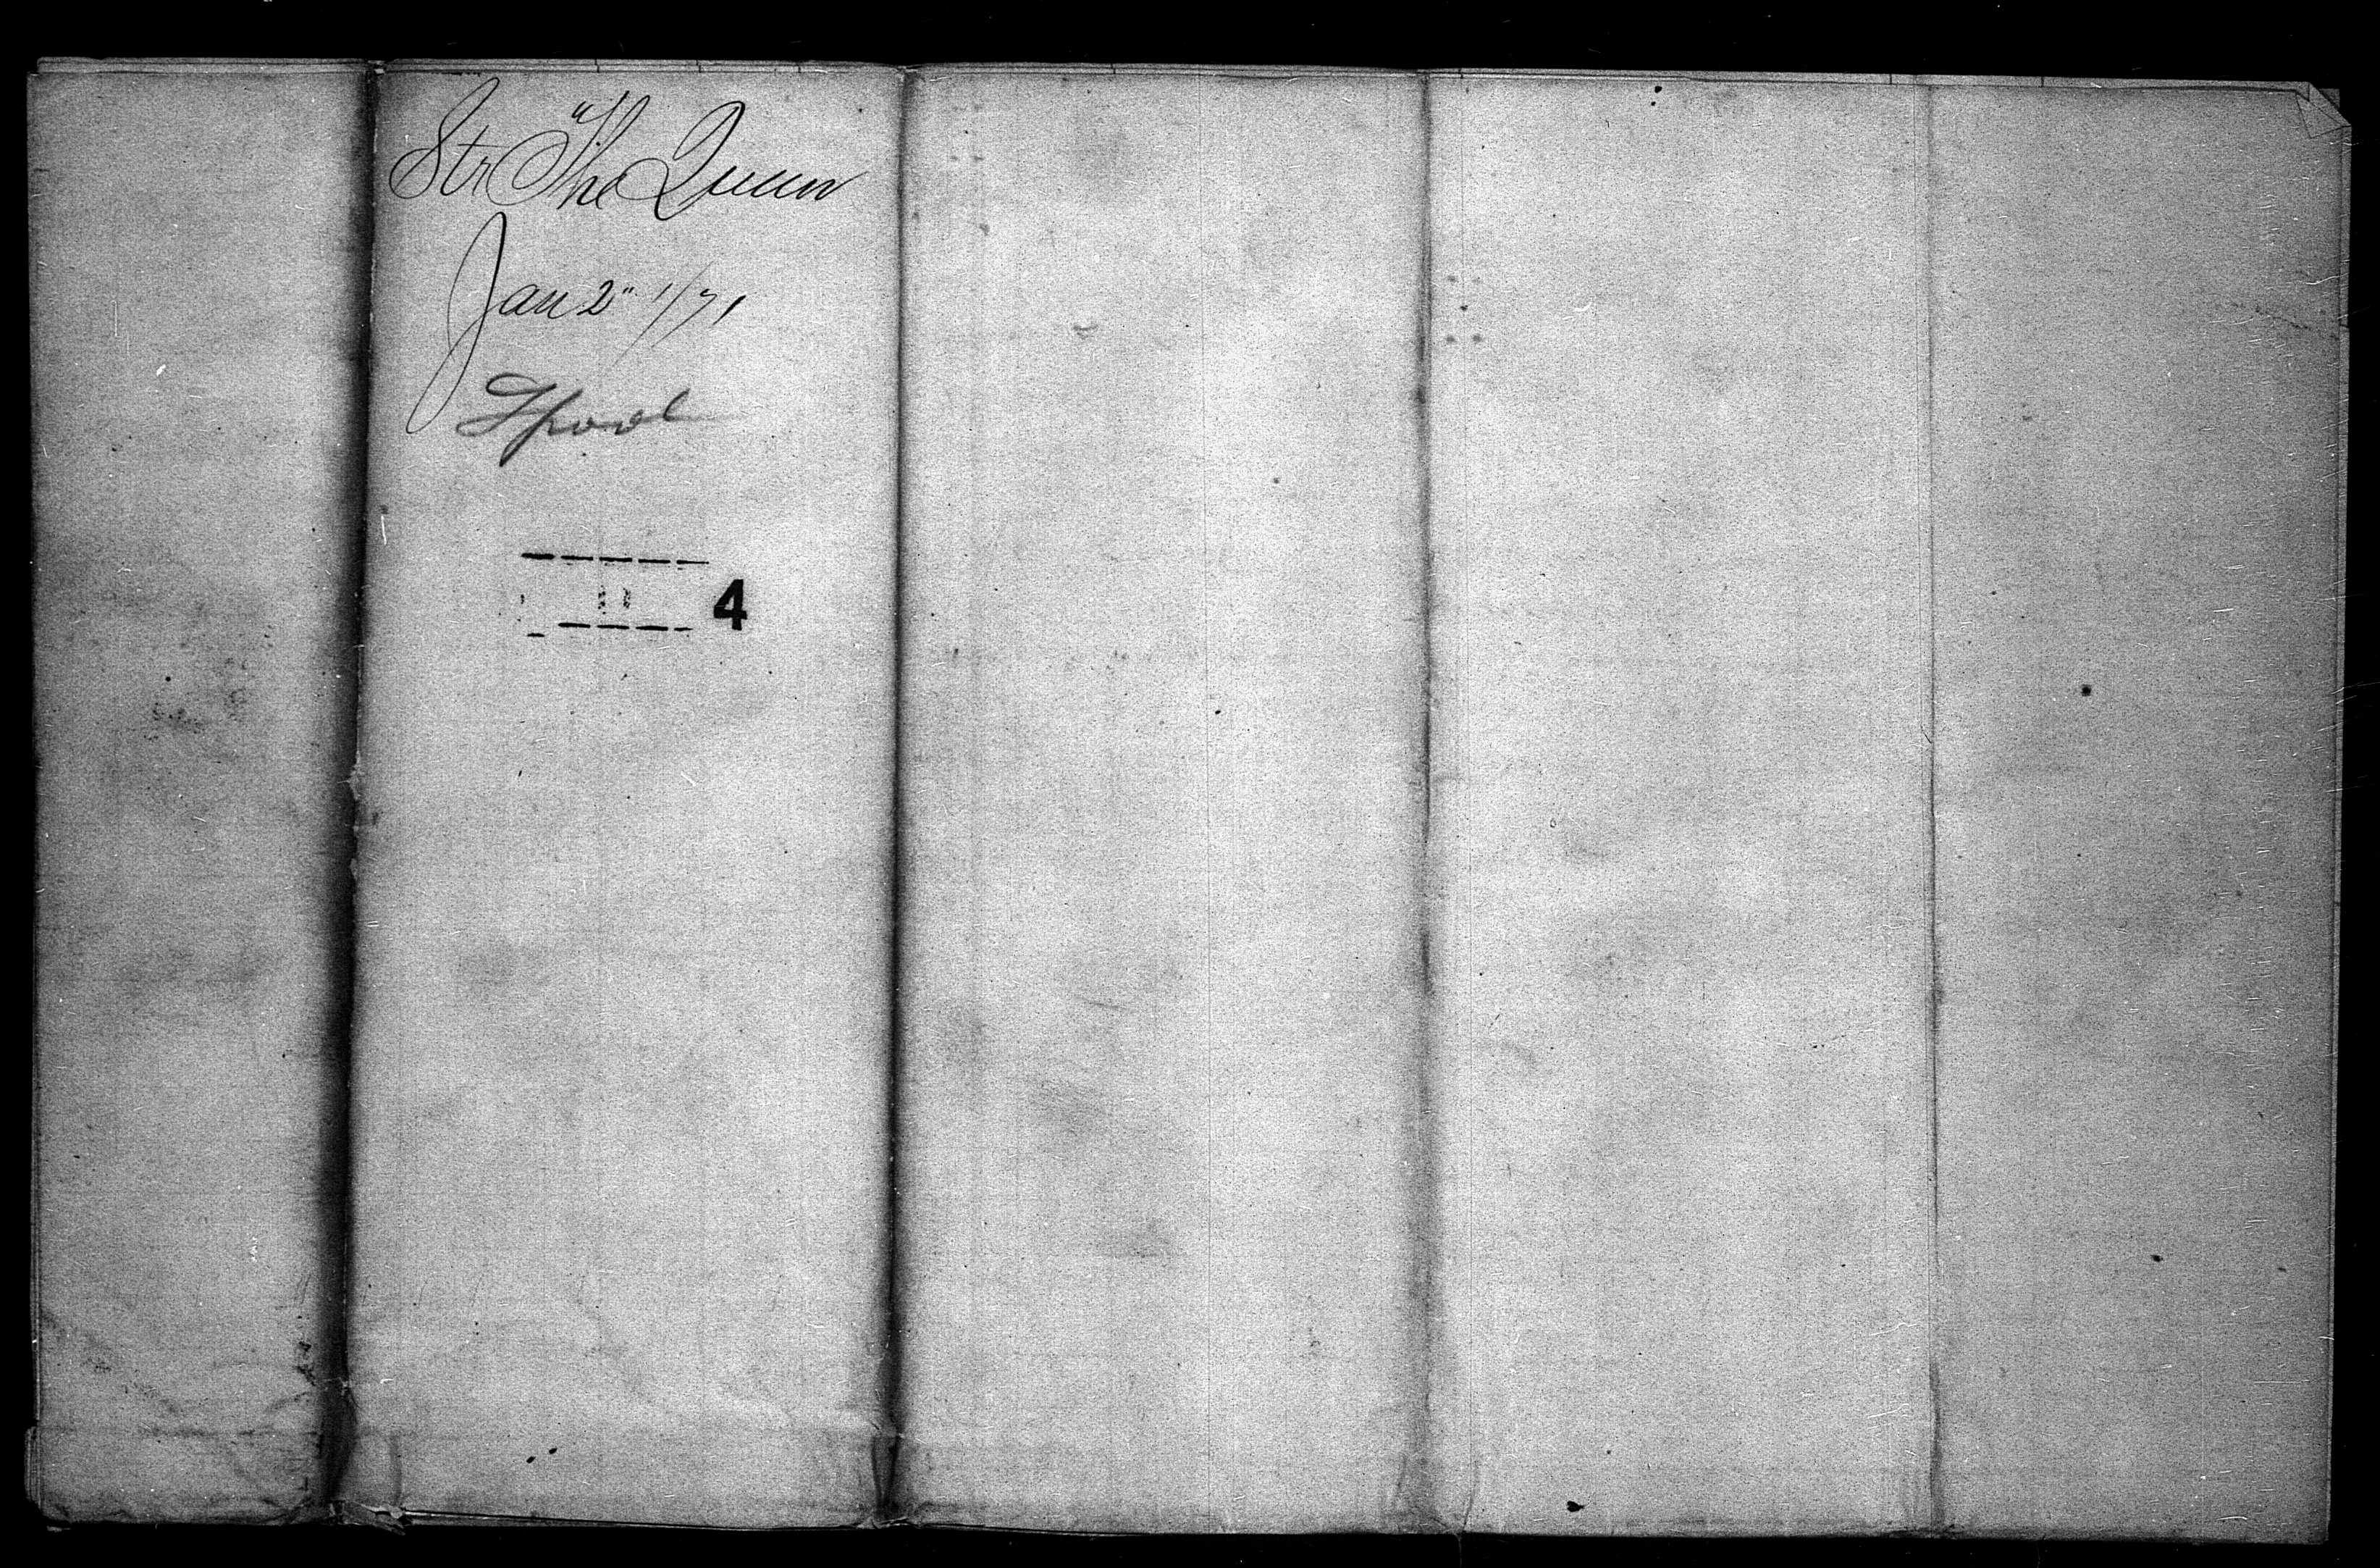 Str "The Queen
Jan 2" 1/71
Lpool
4